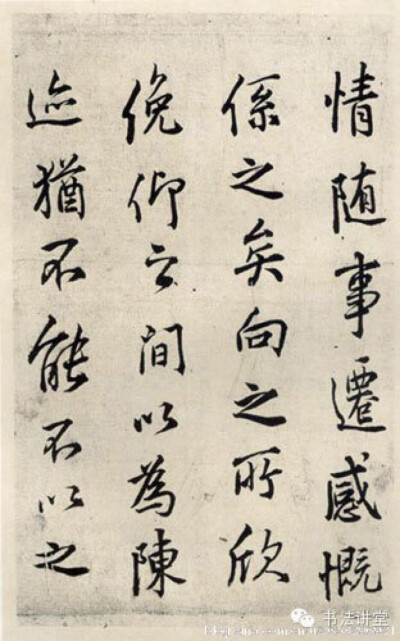 情随事遷感慨
係之矣向之所欣
俛仰之間以為陳
迹猶不能不以之
书法讲堂